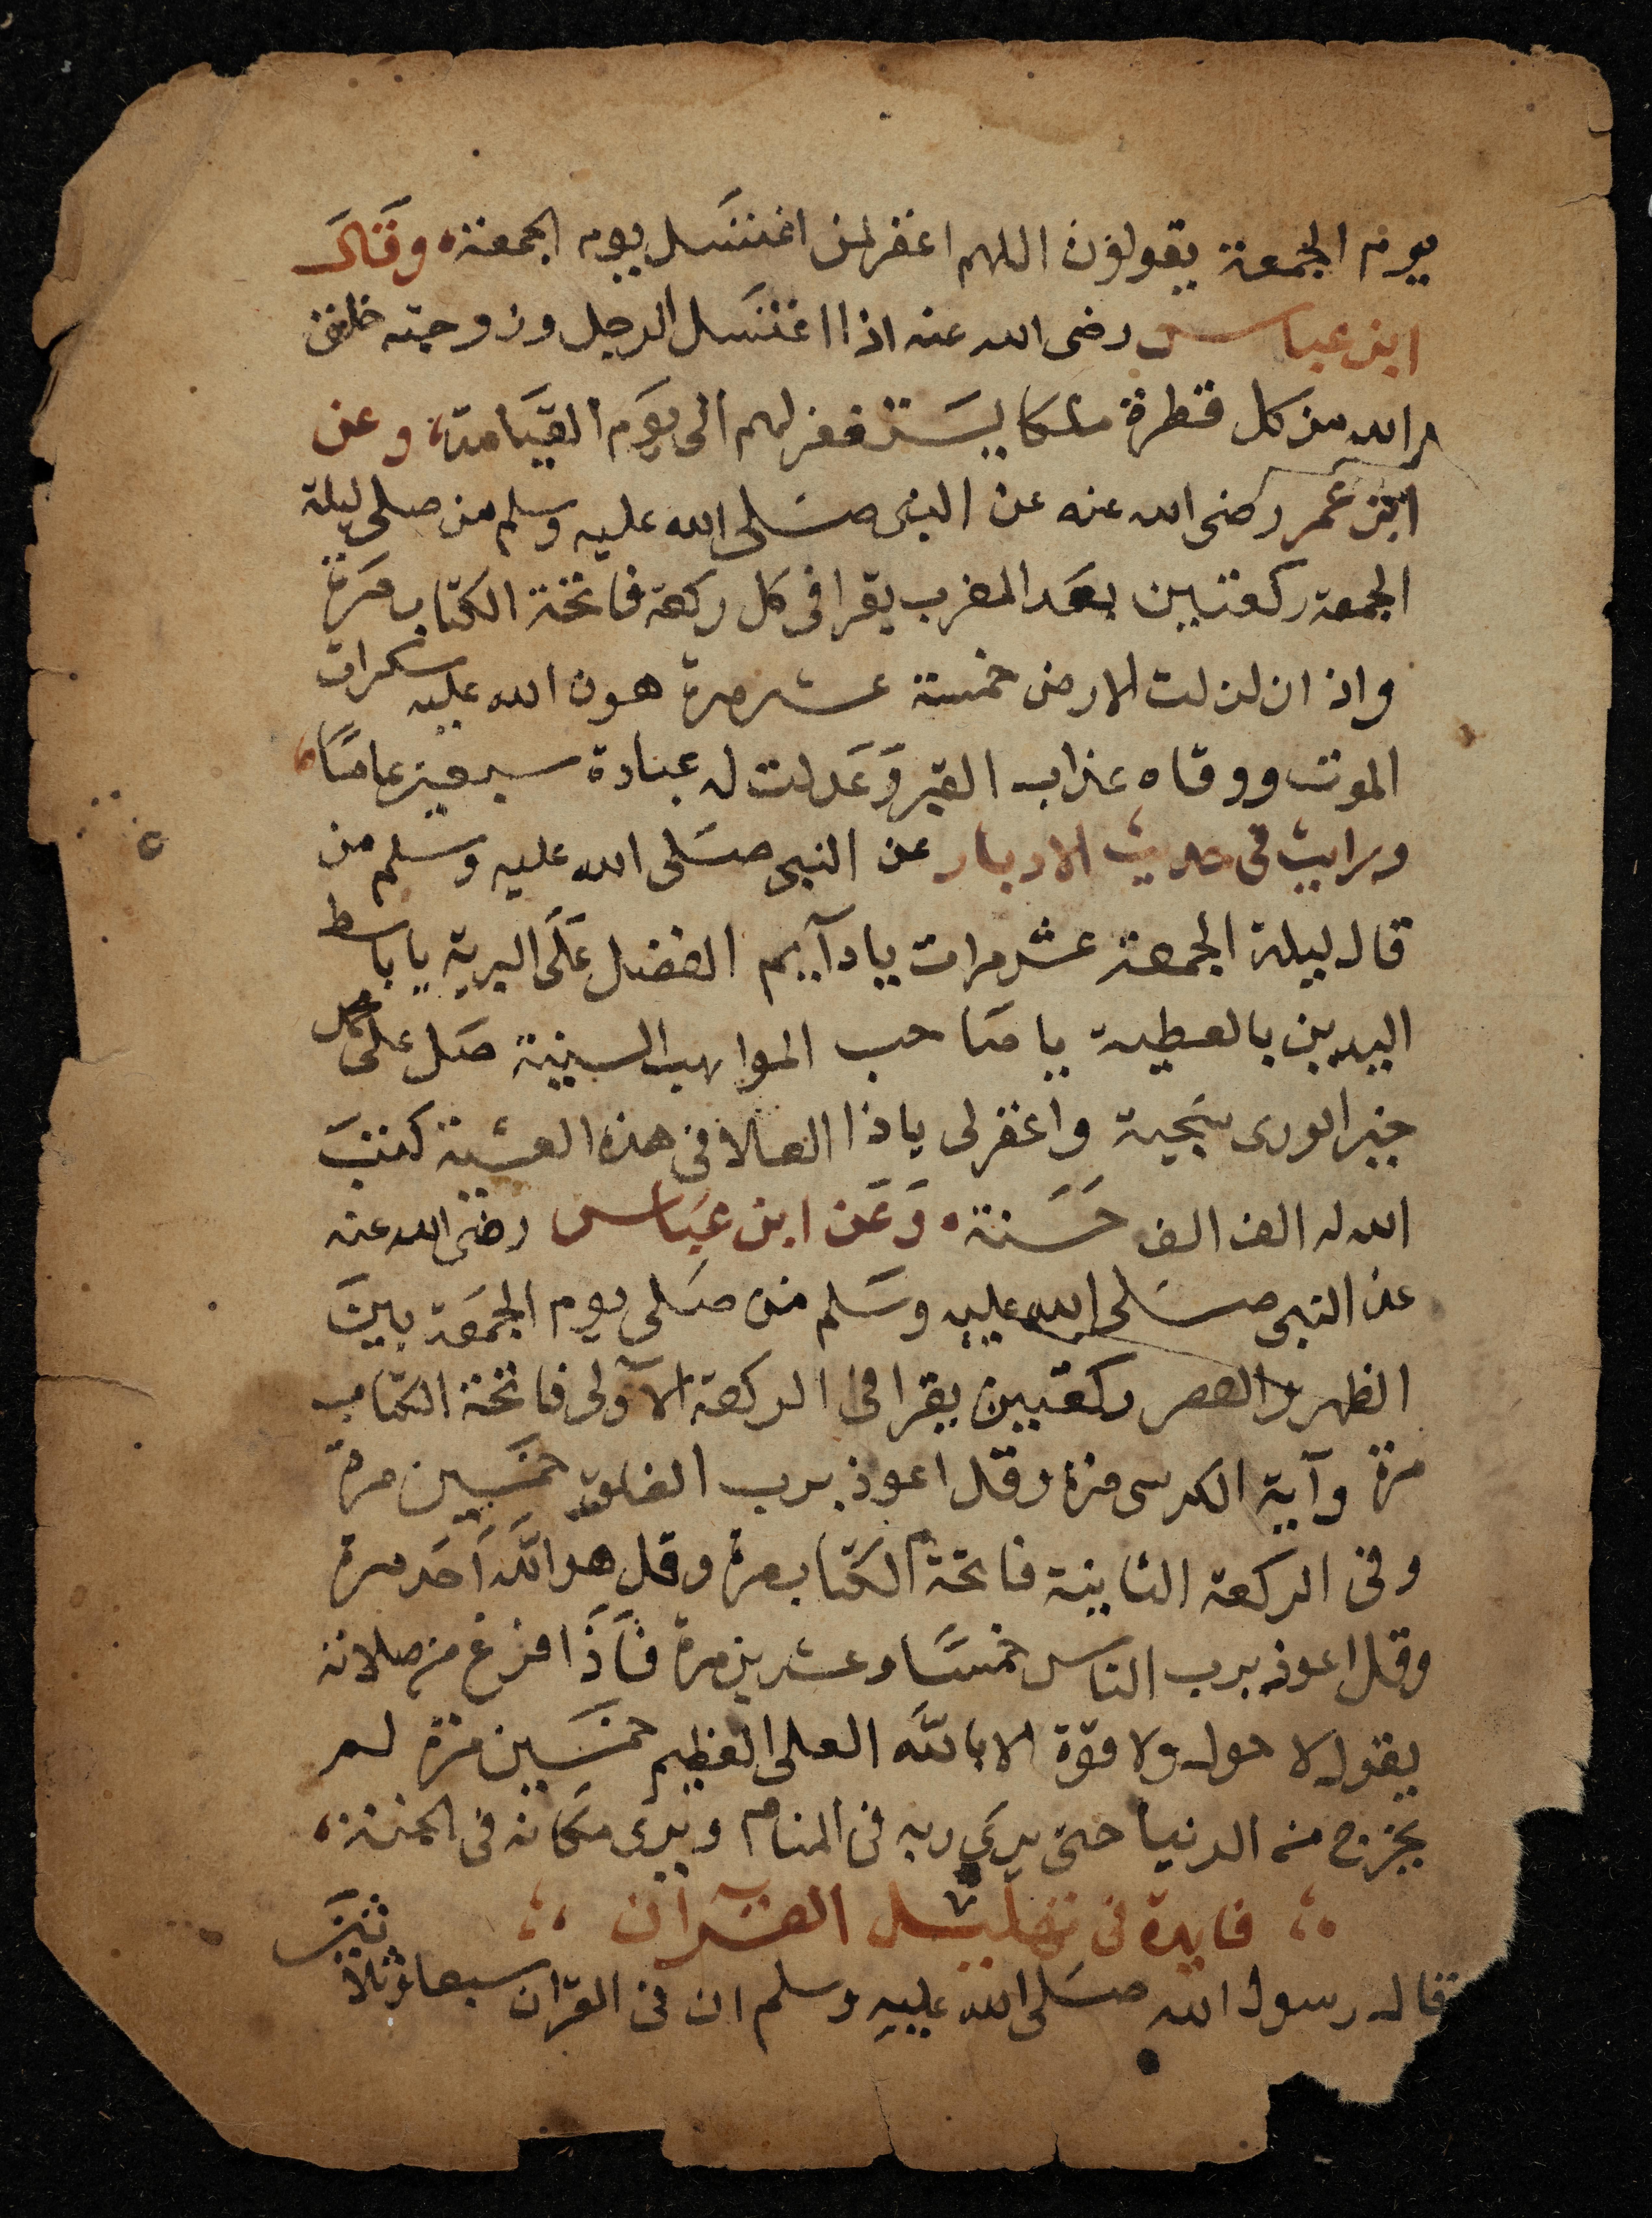 يوم الجمعة يقولون اللهم اغفر لمن اغتسل يوم الجمعة وقال
ابن عباس رضى الله عنه اذا اغتسل الرجل وزوجته خلق
الله من كل قطرة ملكا يستغفر لهم الى يوم القيامة وعن
ابن عمر رضى الله عنه عن النبى صلى الله عليه وسلم من صلى ليلة
الجمعة ركعتين بعد المغرب يقرا فى كل ركعة فاتحة الكتاب مرة
واذا زلزلت الارض خمسة عشر مرة هون الله عليه سكرات
الموت ووقاه عذاب القبر وعدلت له عبادة سبعين عاما
ورايت فى حديث الادبار عن النبى صلى الله عليه وسلم من
قال ليلة الجمعة عشر مرات يا دآيم الفضل على البرية يا باسط
اليدين بالعطية يا صاحب المواهب السنية صل على محمد
خير الورى سجية واغفر لى ياذا العلا فى هذه العشية كتب
الله له الف الف حسنة وعن ابن عباس رضى الله عنه
عن النبى صلى الله عليه وسلم من صلى يوم الجمعة بين
الظهر والعصر ركعتين يقرا فى الركعة الآولى فاتحة الكتاب
مرة وآية الكرسى مرة وقل اعوذ برب الفلق خمسين مرة
وفى الركعة الثانية فاتحة الكتاب مرة وقل هو الله احد مرة
وقل اعوذ برب الناس خمسا وعشرين مرة فاذا فرغ من صلاته
يقول لا حول ولا قوة الا بالله العلى العظيم خمسين مرة لم
يخرج من الدنيا حتى يرى ربه فى المنام ويرى مكانه فى الجنة
فايدة فى تهليل القرآن
قال رسول الله صلى الله عليه وسلم ان فى القران سبعا وثلاثين